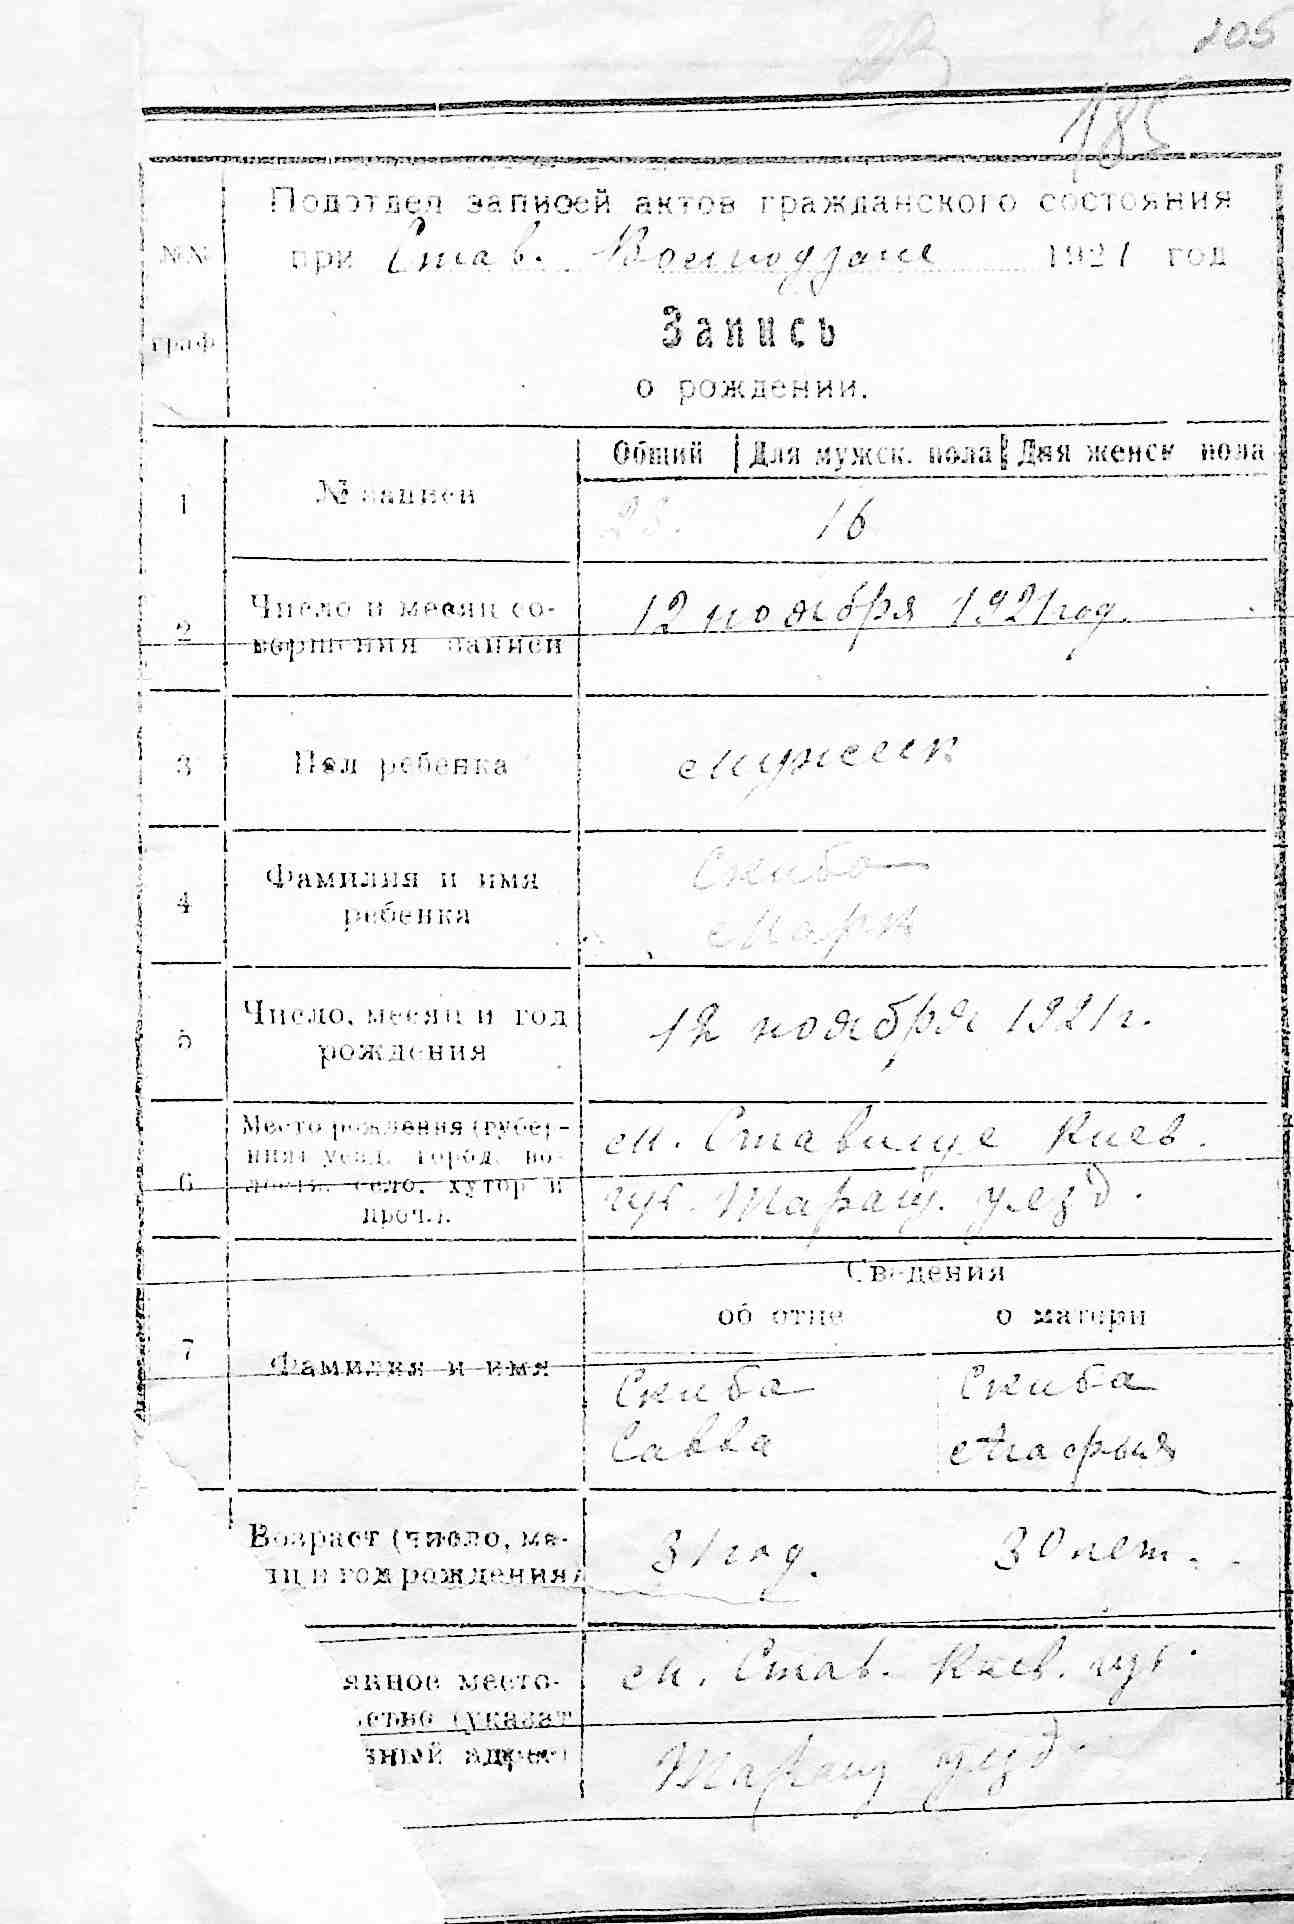 205
23
185
Подотдел записей актов гражданского состояния
№№ при Став. 1921 год
Запись
граф
о рождении.
Общий Для мужск. пола Для женск пола
1 № записи 23. 16
Число и месяц со-
2 вершения записи 12 ноября 1921 год.
3 Пол ребенка мужеск
Фамилия и имя Скиба
4 ребенка Марк
Число, месяц и год
5 рождения 12 ноября 1921 г.
Место рождения (губер- м. Ставище Киев.
ния, уезд, город, во-
6 лость, село, хутор и губ. Таращ. уезд.
проч.).
Сведения
об отце о матери
7 Фамилия и имя
Скиба Скиба
Савва Агафья
Возраст (число, ме- 31 год. 30 лет.
яц и год рождения)
м. Став. Киев. губ.
янное место-
ьство (указат
зный адрес)
Таращ уезд.